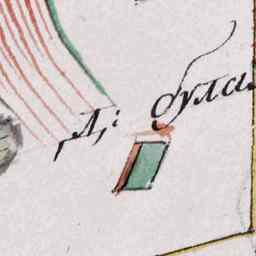 Д: була